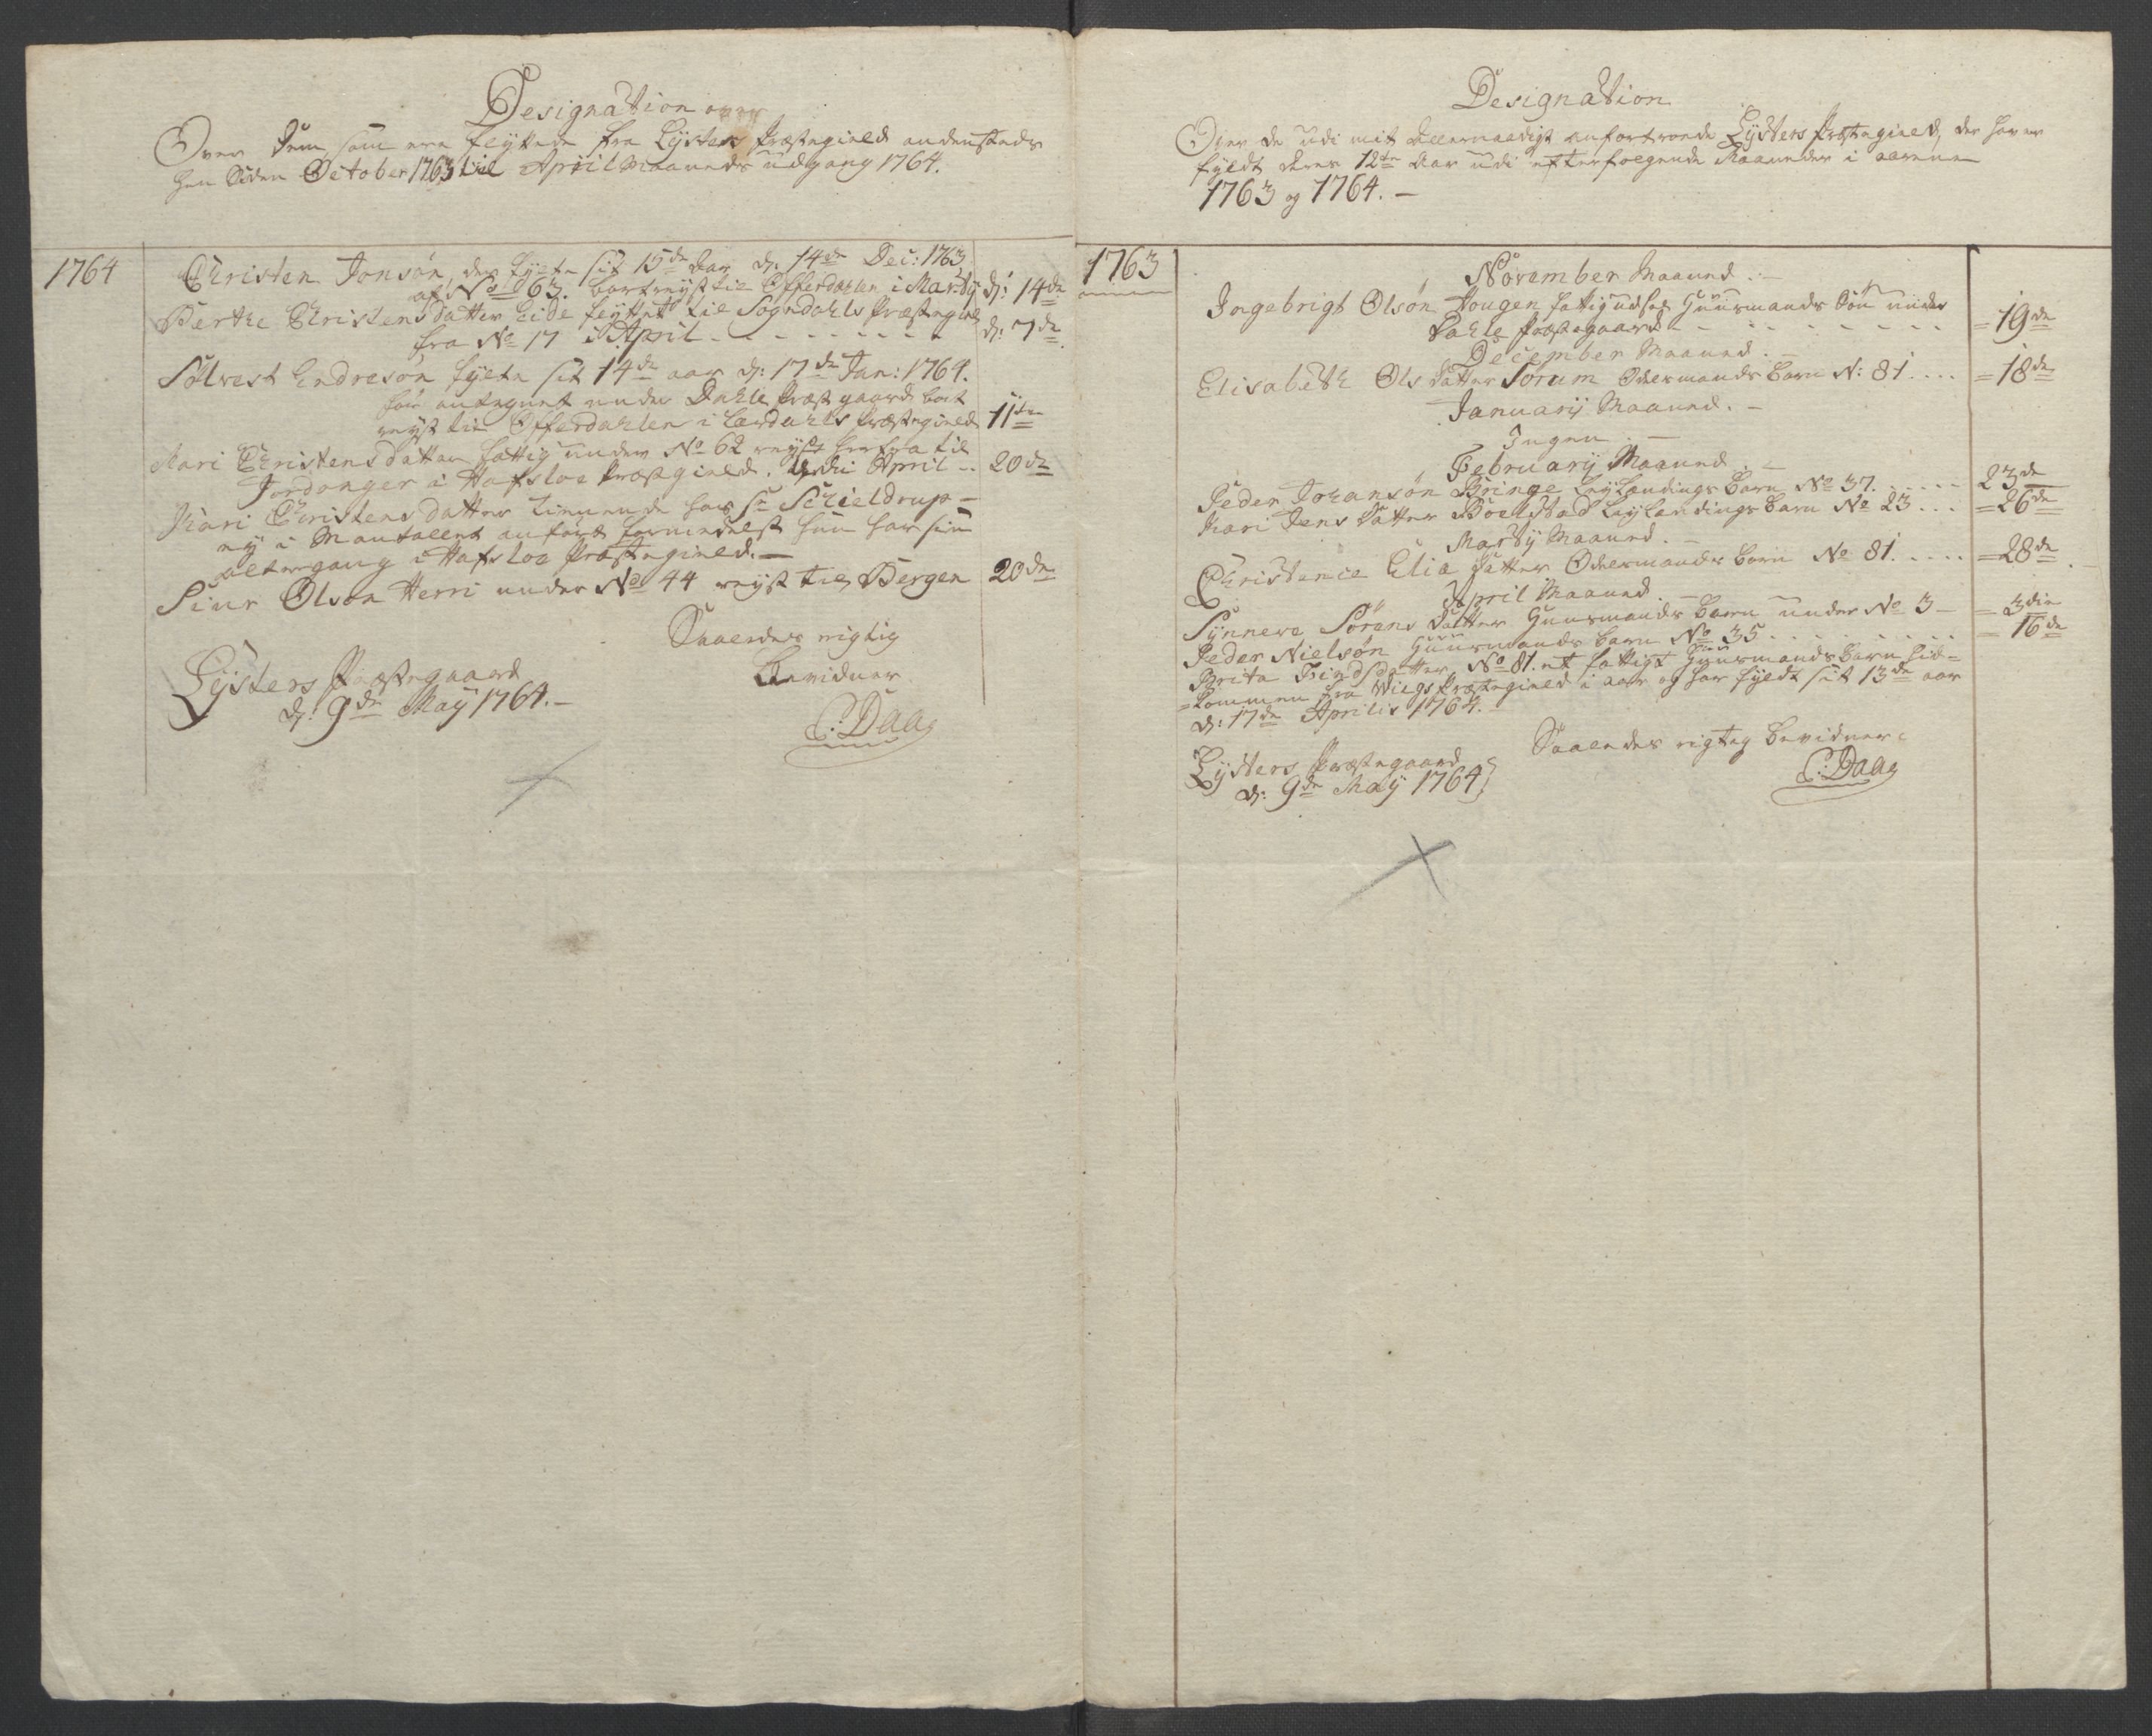 Designation over
Over Dem som ere fløttede fra Lysters Præstegield andensteds
hen siden October 1763 til April Maaneds udgang 1764.
1764
Christen Jonsøn, der fyete sit 15de Aar d: 14de Dec: 1763
af No 63. bortreyst til Offerdahlen i Martij d: 14de
Berthe Christensdatter Eide fløttet til Sogndahls Præstegield
fra No 17 i April - - - - - - - - d: 7de
Sølvest Endresøn fyete sit 14de aar d: 17de Jan: 1764.
før antegnet under Dahle Præstgaard bort
reyst til Offerdahlen i Lærdahls Præstegield 11te
Mari Christensdatter fattig under No 62 reyst herfra til
Jordanger i Hafsloe Præstgield. udi April .. 20de
Kari Christensdatter tienende hos Sr Schieldrup -
ey i Mantallet anført formedelst hun har sin
altergang i Hafsloe Præstegield. -
Siur Olsøn Herri under No 44 reyst til Bergen 20de
Saaledes rigtig
Bevidner
Lysters Præstegaard
d: 9de May 1764. -
C: Daae
Designation
Over de udi mit Allernaadigst anfortroede Lysters Præstegield, der haver
fyldt deres 12te Aar udi efterfølgende Maaneder i aarene
1763 og 1764. -
1763
November Maaned. -
Ingebrigt Olsøn Hougen fattig Huusmands Søn under
Dahle Præstegaard - - - - - - - - = 19de
December Maaned. -
Elisabeth Olsdatter Sorum Odelsmands Barn N: 81 .... = 18de
Januarij Maaned. -
Ingen. -
Februarij Maaned. -
Peder Johansøn Bringe Leylændings Barn No 37. ..... 23de
Kari Jensdatter Bolstad Leylendings Barn No 23 ... = 26de
Martij Maaned. -
Christence Eliædatter Odelsmands Barn No 81. .... = 28de
April Maaned. -
Synneve Sørensdatter Huusmands Barn under No 3 - = 3die
Peder Nielsøn Huusmands Barn No 35 ........ = 16de
Brita Findsdatter, No 81. et fattigt Huusmands Barn hid=
=kommen fra Wiigs Præstegield i aar og har fyldt sit 13de aar
d: 17de Aprilis 1764. -
Saaledes rigtig bevidner
Lysters Præstegaard
d: 9de May 1764
C: Daae